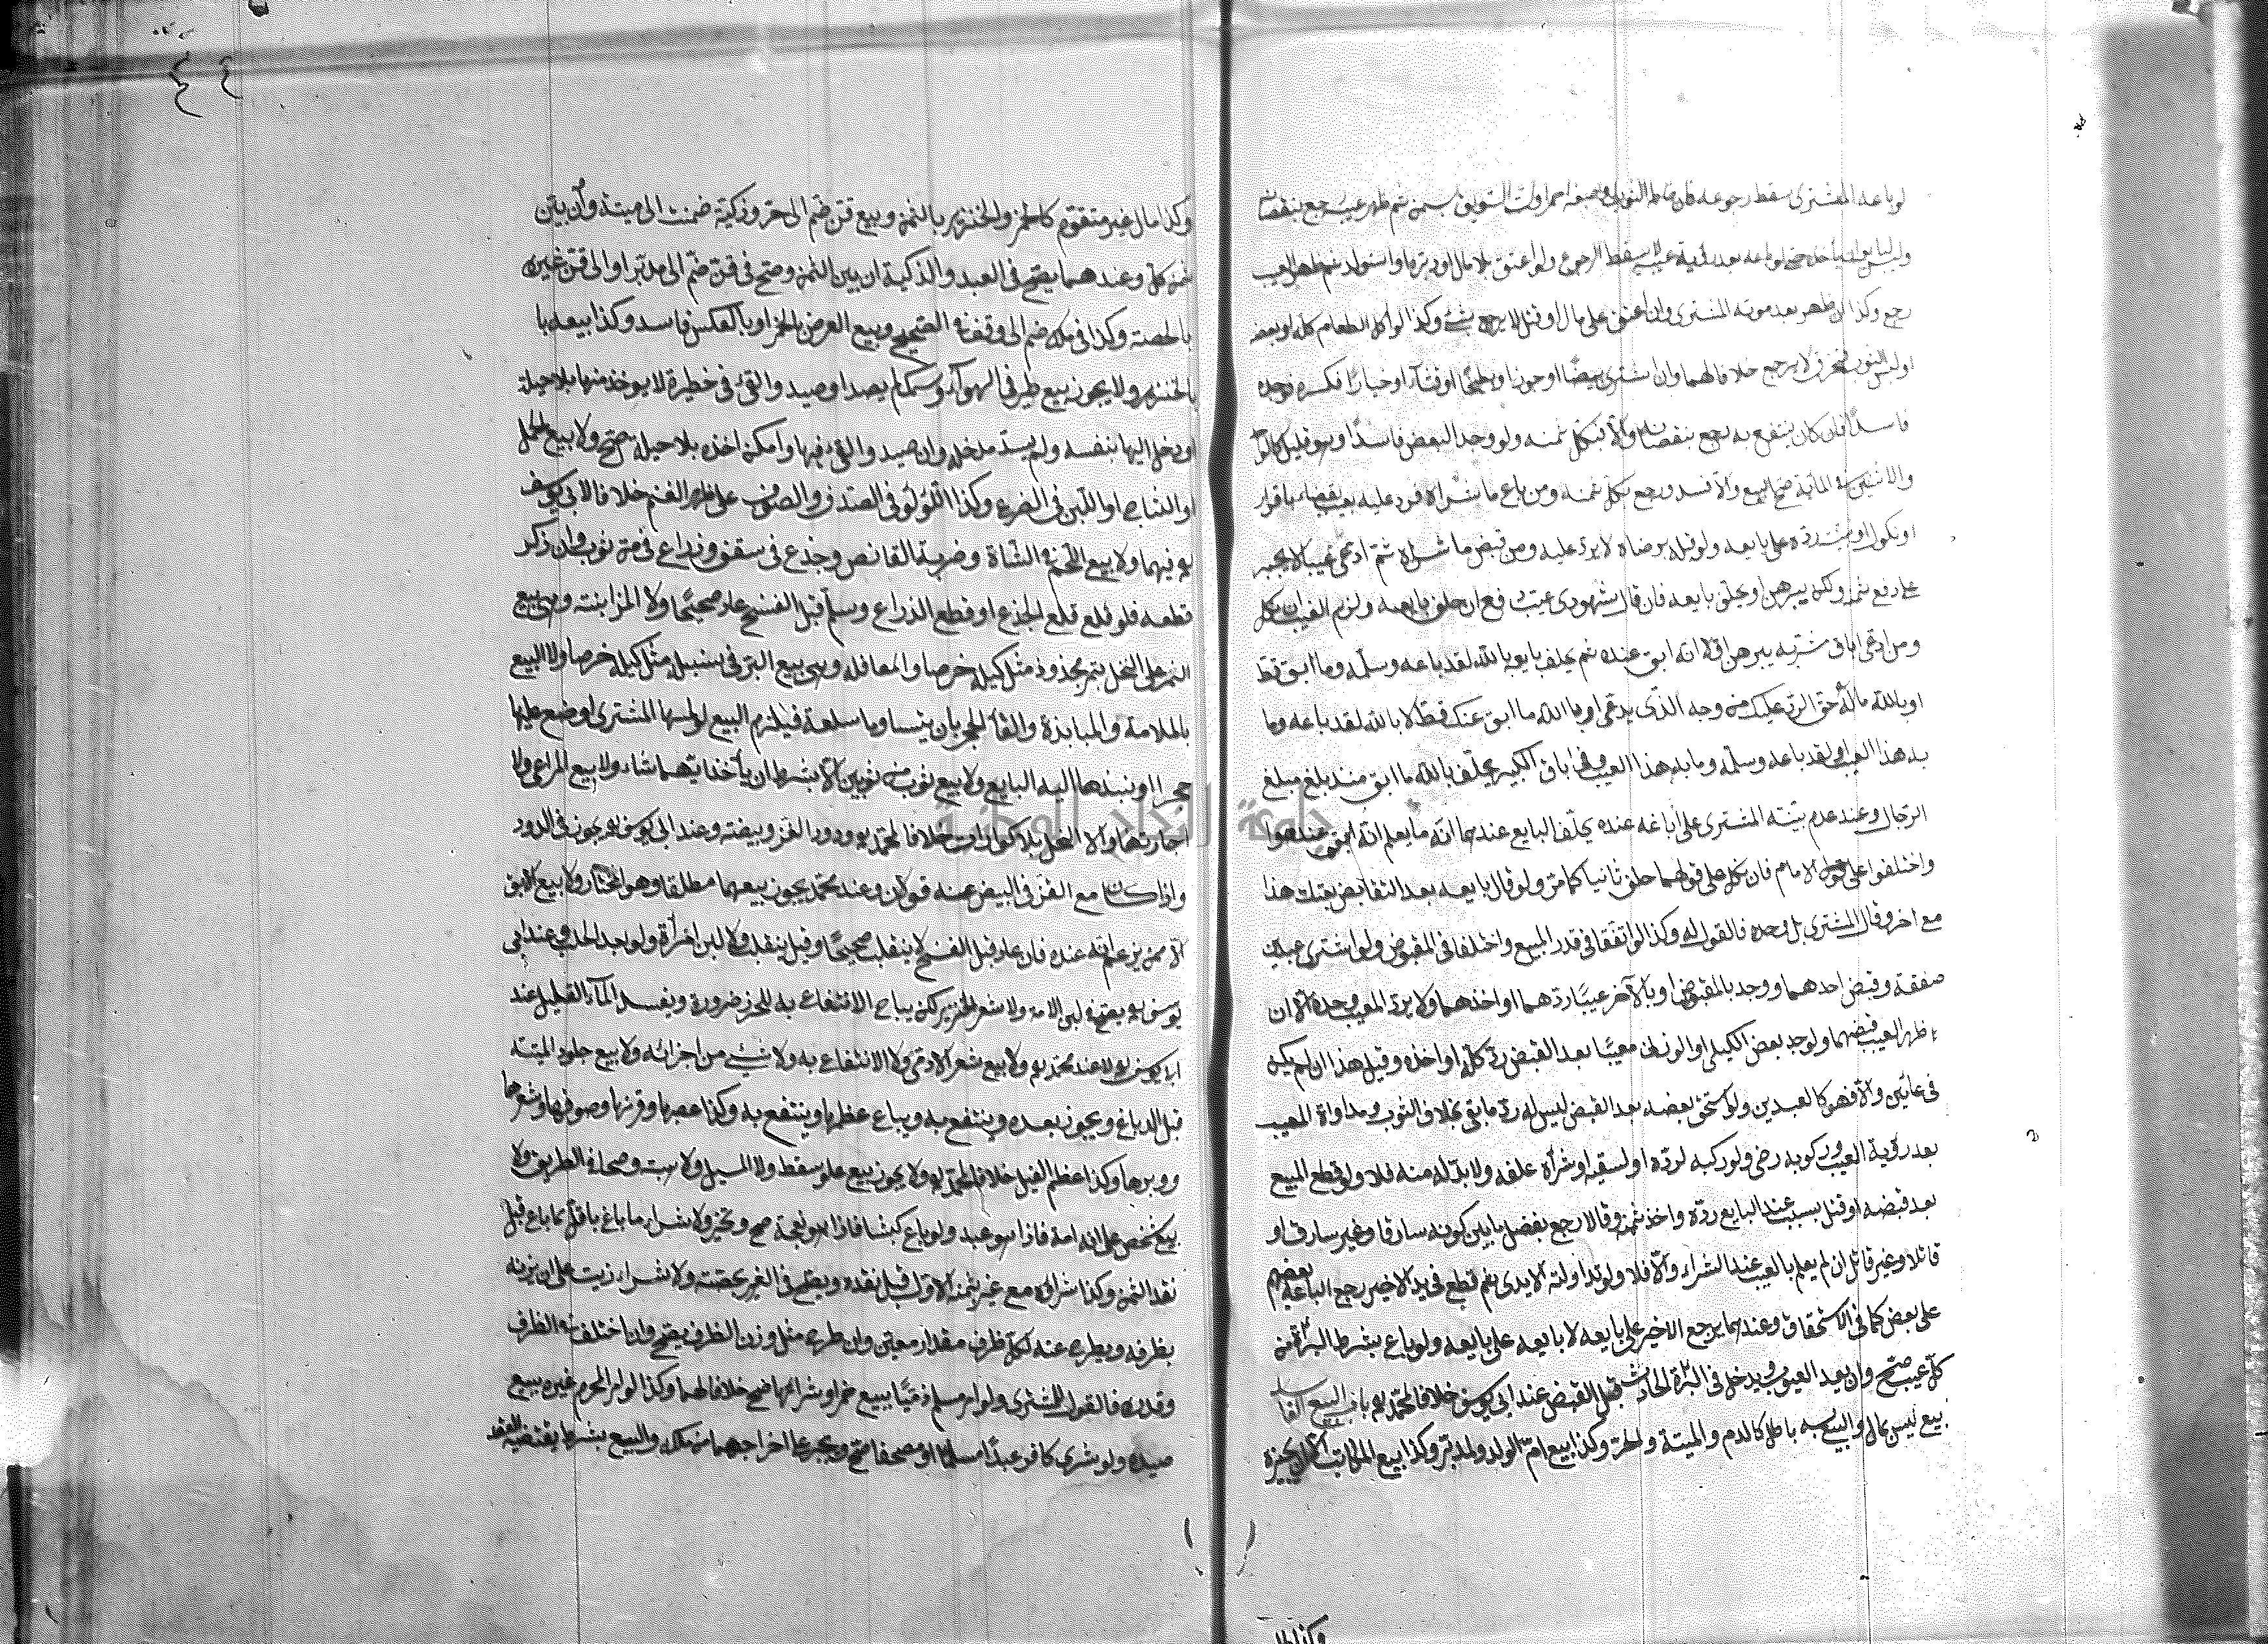 لو باعه المشترى سقط رجوعه فان خاط الثوب او صبغه احمر اولت السويق بسمن ثم ظهر عيبه رجع بنقصانه
وليس لبايعه ان يأخذه حتى لو باعه بعد رؤية عيبه لا يسقط الرجوع ولو اعتق بلا مال او دبر او استولد ثم ظهر العيب
رجع وكذا ان ظهر بعد موته المشترى وان اعتق على مال او قتل لا يرجع بشئ وكذا لو اكل الطعام كله او بعضه
او لبس الثوب فتخرق لا يرجع خلافا لهما وان اشترى بيضا او جوزا او بطيخا او قثاء او خيارا فكسره فوجده
فاسدا فان كان ينتفع به رجع بنقصانه والا فبكل ثمنه ولو وجد البعض فاسدا وهو قليل كالواحد
والاثنين فى المائة صح البيع والا فسد ورجع بكل ثمنه ومن باع ما شراه فرد عليه بعيب بقضاء باقرار
او نكول او بينة رده على بايعه ولو قبله برضاه لا يرد عليه ومن قبض ما شراه ثم ادعى عيبا لا يجبر
على دفع ثمنه ولكن يبرهن او يحلف بايعه فان قال شهودى غيب دفع ان حلف بايعه ولزم العيب ان نكل
ومن ادعى اباق مشتريه يبرهن اولا انه ابق عنده ثم يحلف بايعه بالله لقد باعه وسلمه وما ابق قط
او بالله ماله حق الرد عليك من وجه الذى يدعى او بالله ما ابق عندك قط لا بالله لقد باعه وما
به هذا العيب او لقد باعه وسلمه وما به هذا العيب وفى اباق الكبير يحلف بالله ما ابق منذ بلغ مبلغ
الرجال وعند عدم بينة المشترى على اباقه عنده يحلف البايع عندهما انه ما يعلم انه ابق عنده
واختلفوا على قول الامام فان نكل على قولهما حلف ثانيا كما مر ولو قال بايعه بعد التقابض بعتك هذا
مع اخر وقال المشترى بل وحده فالقول له وكذا لو اتفقا فى قدر المبيع واختلفا فى المقبوض ولو اشترى عبدين
صفقة وقبض احدهما ووجد بالمقبوض او بالآخر عيبا ردهما او اخذهما ولا يرد المعيب وحده الا ان
ظهر العيب بعد قبضهما ولو وجد بعض الكيلى او الوزنى معيبا بعد القبض رد كله او اخذه وقيل هذا ان لم يكن
فى عائين والا فهو كالعبدين ولو استحق بعضه بعد القبض ليس له رد ما بقى بخلاف الثوب ومداواة المعيب
بعد رؤية العيب وركوبه رضى ولو ركبه لرده او لسقيه او شراء علفه ولا بد له منه فلا ولو قطع المبيع
بعد قبضه او قتل بسبب عند البايع رده واخذ ثمنه وقالا رجع بفضل ما بين كونه سارقا وغير سارق او
قاتلا وغير قاتل ان لم يعلم بالعيب عند الشراء والا فلا ولو تداولته الايدى ثم قطع فى يد الاخير رجع الباعة بعضهم
على بعض كما فى الاستحقاق وعندهما يرجع الاخير على بايعه لا بايعه على بايعه ولو باع بشرط البراءة من
كل عيب صح وان لم يعد العيوب ويدخل فى البراءة الحادث قبل القبض عند ابى يوسف خلافا لمحمد باب البيع الفاسد
بيع ليس بمال والبيع به باطل كالدم والميتة والحر وكذا بيع ام الولد والمدبر وكذا بيع المكاتب
وكذا مال غير متقوم كالخمر والخنزير بالثمن وبيع قن ضم الى حر وذكية ضمت الى ميتة وان بين
ثمن كل وعندهما يصح فى العبد والذكية ان بين الثمن وصح فى قن ضم الى مدبر او الى قن غيره
بالحصة وكذا فى ملك ضم الى وقف فى الصحيح وبيع العرض بالخمر او بالعكس فاسد وكذا بيعه با
بالخنزير ولا يجوز بيع طير فى الهواء وسمك لم يصد او صيد والقى فى حظيرة لا يؤخذ منها بلا حيلة
او دخل اليها بنفسه ولم يسد مدخله وان صيد والقى فيها وامكن اخذه بلا حيلة صح ولا بيع الحمل
او النتاج او اللبن فى الضرع وكذا اللؤلؤ فى الصدف والصوف على ظهر الغنم خلافا لابى يوسف
فيهما ولا بيع اللحم فى الشاة وضربة القانص وجذع فى سقف وذراع فى من ثوب وان ذكر
قطعه فلو قلع الجذع او قطع الذراع وسلم قبل الفسخ عاد صحيحا ولا المزابنة وهى بيع
الثمر على النخل بتمر مجذوذ مثل كيله خرصا والمحاقلة وهى بيع البر فى سنبله مثل كيله خرصا ولا البيع
بالملامسة والمنابذة والقاء الحجر بان يتساوما سلعة فيلزم البيع لو لمسها المشترى او وضع عليها
حجرا او نبذها اليه البايع ولا بيع ثوب من ثوبين الا بشرط ان يأخذ ايهما شاء ولا بيع المراعى ولا
اجارتها ولا النحل بلا كوارات خلافا لمحمد ودود القز وبيضه وعند ابى يوسف يجوز فى الدود
واذا كان مع القز فى البيض عنه قولان وعند محمد يجوز بيعهما مطلقا وهو المختار ولا بيع الآبق
الا ممن يزعم انه عنده فان عاد قبل الفسخ لا ينقلب صحيحا وقيل ينقلب ولا لبن امرأة ولو بعد الحلب وعند ابى
يوسف يصح فى لبن الامة ولا شعر الخنزير لكن يباح الانتفاع به للخرز ضرورة ويفسد الماء القليل عند
ابى يوسف لا عند محمد ولا بيع شعر الادمى ولا الانتفاع به ولا شئ من اجزائه ولا بيع جلود الميتة
قبل الدباغ ويجوز بعده وينتفع به ويباع عظمها وينتفع به وكذا عصبها وقرنها وصوفها وشعرها
ووبرها وكذا عظم الفيل خلافا لمحمد ولا يجوز بيع علو سقط ولا المسيل ولا هبته وصحا فى الطريق ولا
بيع شخص على انه امة فاذا هو عبد ولو باع كبشا فاذا هو نعجة صح وتخير ولا شراء ما باع باقل مما باع قبل
نقد الثمن وكذا شراؤه مع غيره بثمنه الاول قبل نقده ويصح فى الغير بحصته ولا شراء زيت على ان يزنه
بظرفه ويطرح عنه لكل ظرف مقدار معين وان طرح مثل وزن الظرف يصح وان اختلفا فى الظرف
وقدره فالقول للمشترى ولو امر مسلم ذميا ببيع خمر او شرائها صح خلافا لهما وكذا لو امر المحرم غيره ببيع
صيده ولو شرى كافر عبدا مسلما او مصحفا صح ويجبر على اخراجهما من ملكه والبيع بشرط يقتضيه العقد